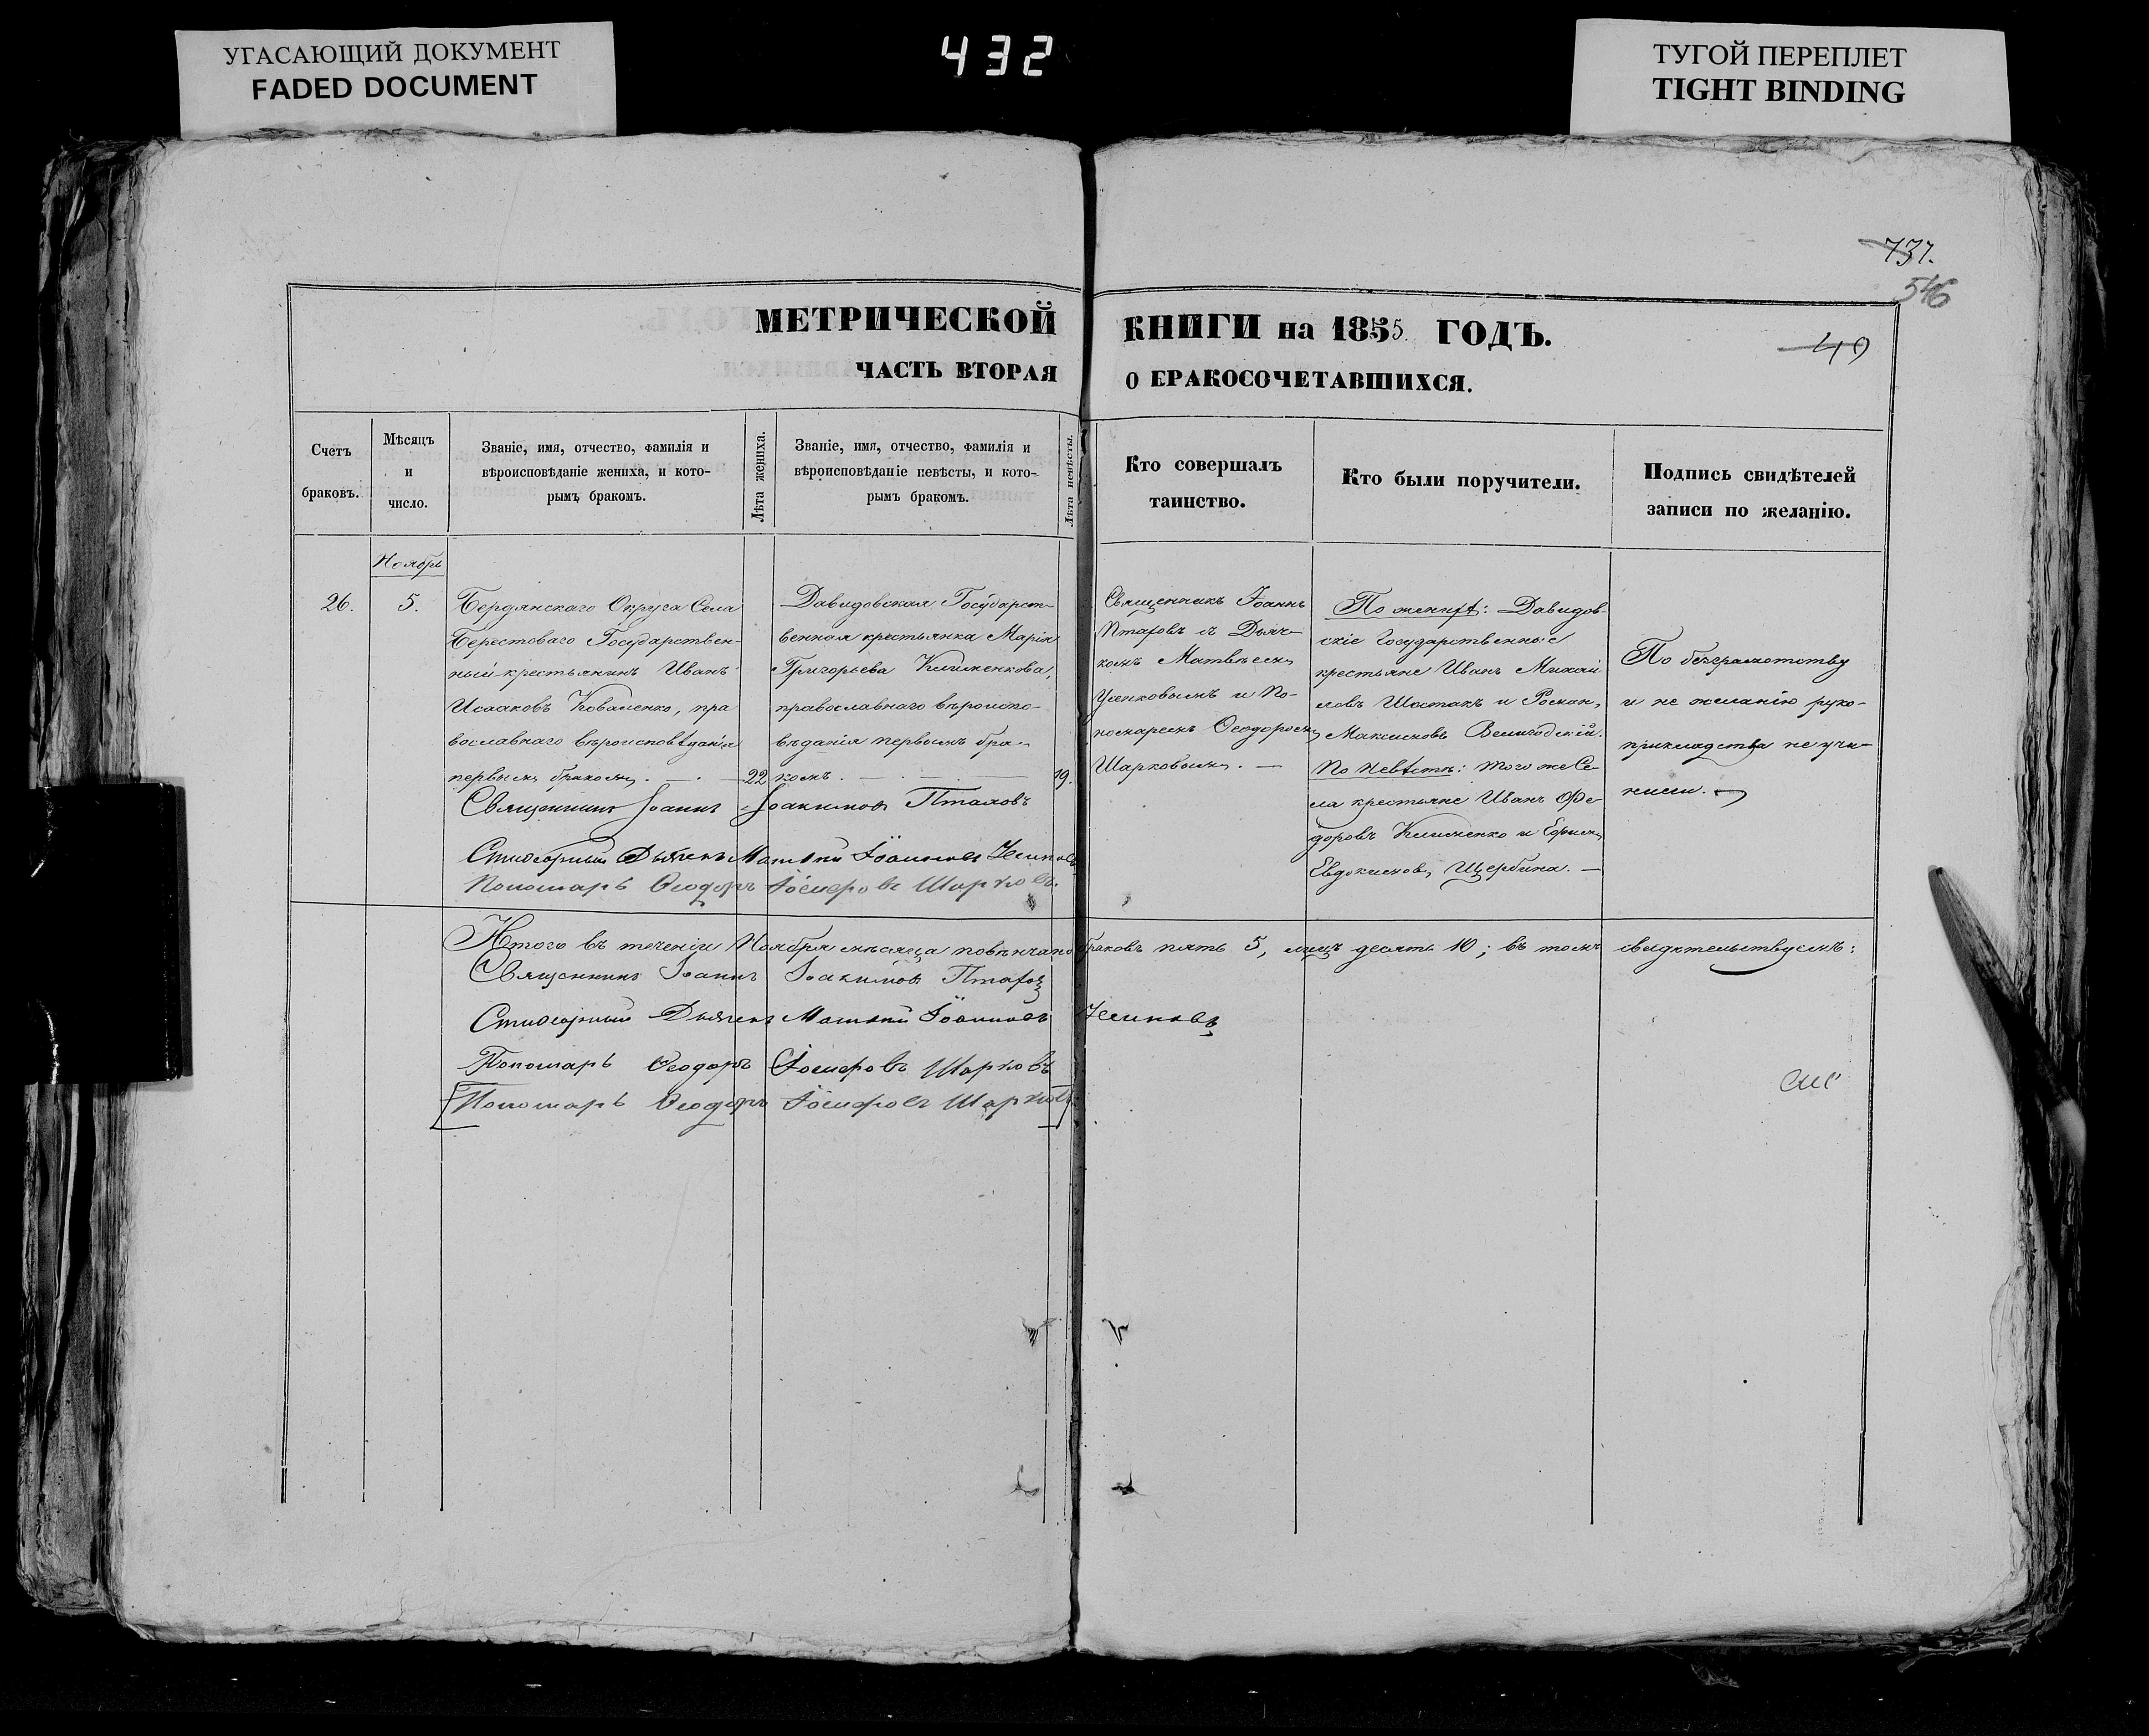 УГАСАЮЩИЙ ДОКУМЕНТ
FADED DOCUMENT
432
ТУГОЙ ПЕРЕПЛЕТ
TIGHT BINDING
737.
546
МЕТРИЧЕСКОЙ КНИГИ на 1855. ГОДЪ.
49
ЧАСТЬ ВТОРАЯ О БРАКОСОЧЕТАВШИХСЯ.
Счетъ
браковъ.
Мѣсяцъ
и
число.
Званіе, имя, отчество, фамилія и
вѣроисповѣданіе жениха, и кото-
рымъ бракомъ.
Лѣта жениха.
Званіе, имя, отчество, фамилія и
вѣроисповѣданіе невѣсты, и кото-
рымъ бракомъ.
Лѣта невѣсты.
Кто совершалъ
таинство.
Кто были поручители.
Подпись свидѣтелей
записи по желанію.
Ноябрь
26.
5.
Бердянскаго Округа Села
Берестоваго Государствен-
ный крестьянинъ Иванъ
Исааковъ Коваленко, пра
вославнаго вѣроисповѣданія
первымъ бракомъ.
22
Давидовская Государст-
венная крестьянка Марія
Григорьева Клименкова,
православнаго вѣроиспо-
вѣданія первымъ бра-
комъ.
19.
Священникъ Іоаннъ
Птаховъ съ Дьяч-
комъ Матвѣемъ
Усенковымъ и По-
номаремъ Ѳеодоромъ
Шарковымъ.
По женихѣ: Давидов
скіе Государственные
крестьяне Иванъ Михай
ловъ Шостакъ и Романъ
Максимовъ Великодскій.
По невѣстѣ: того же Се-
ла крестьяне Иванъ Фе-
доровъ Клименко и Ефимъ
Евдокимовъ Щербина.
По безграмотству
и не желанію руко-
прикладства не учи-
нили.
Священникъ Іоаннъ Іоакимовъ Птаховъ
Стихарный Дьячекъ Матѳій Іоанновъ Усенковъ
Пономарь Ѳеодоръ Іосифовъ Шарковъ.
Итого въ теченіи Ноября мѣсяца повѣнчано браковъ пять 5, лицъ десять 10; въ томъ свидѣтельствуемъ:
Священникъ Іоаннъ Іоакимовъ Птаховъ
Стихарный Дьячекъ Матѳій Іоанновъ Усенковъ
Пономарь Ѳеодоръ Іосифовъ Шарковъ
Пономарь Ѳеодоръ Іосифовъ Шарковъ